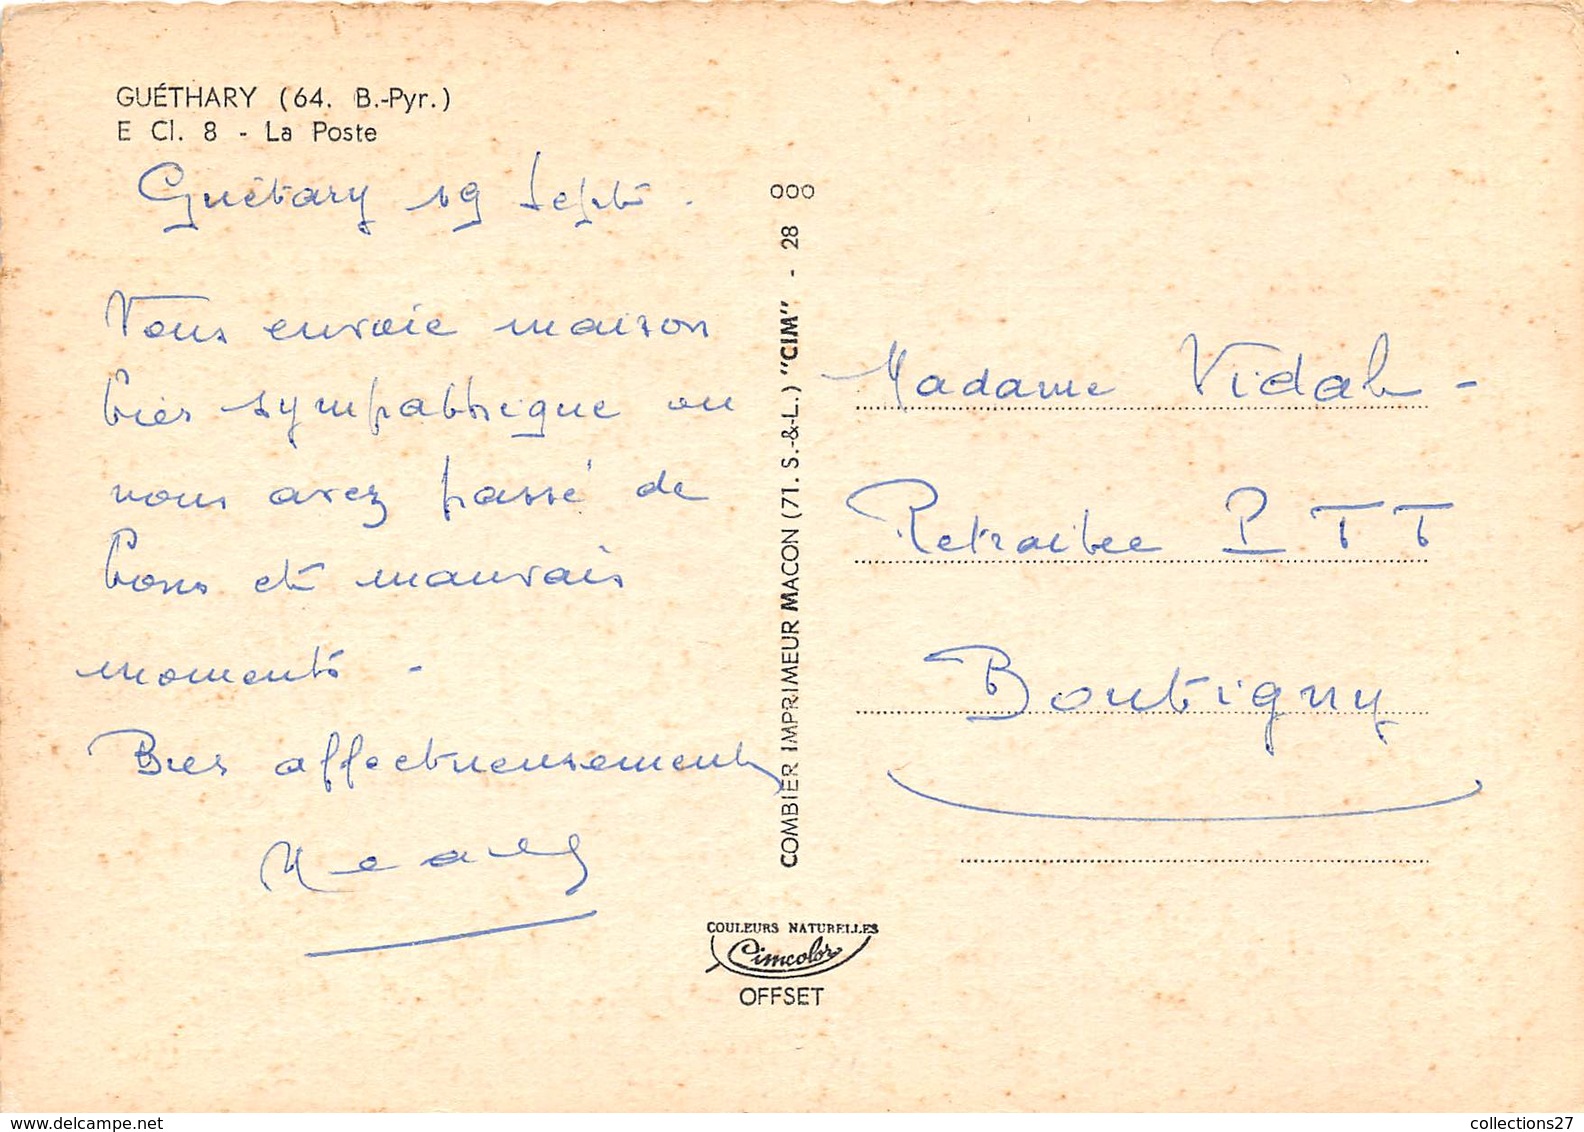 GUÉTHARY (64. B.-Pyr.)
E Cl. 8 - La Poste
Guétary 19 Sept.
Vous envoie maison
bien sympathique ou
vous avez passé de
bons et mauvais
moments -
Bien affectueusement
COMBIER IMPRIMEUR MACON (71. S.-&-L.) "CIM" - 28 000
COULEURS NATURELLES
Cimcolor
OFFSET
Madame Vidal -
Retraitee P T T
Boutigny
collections27